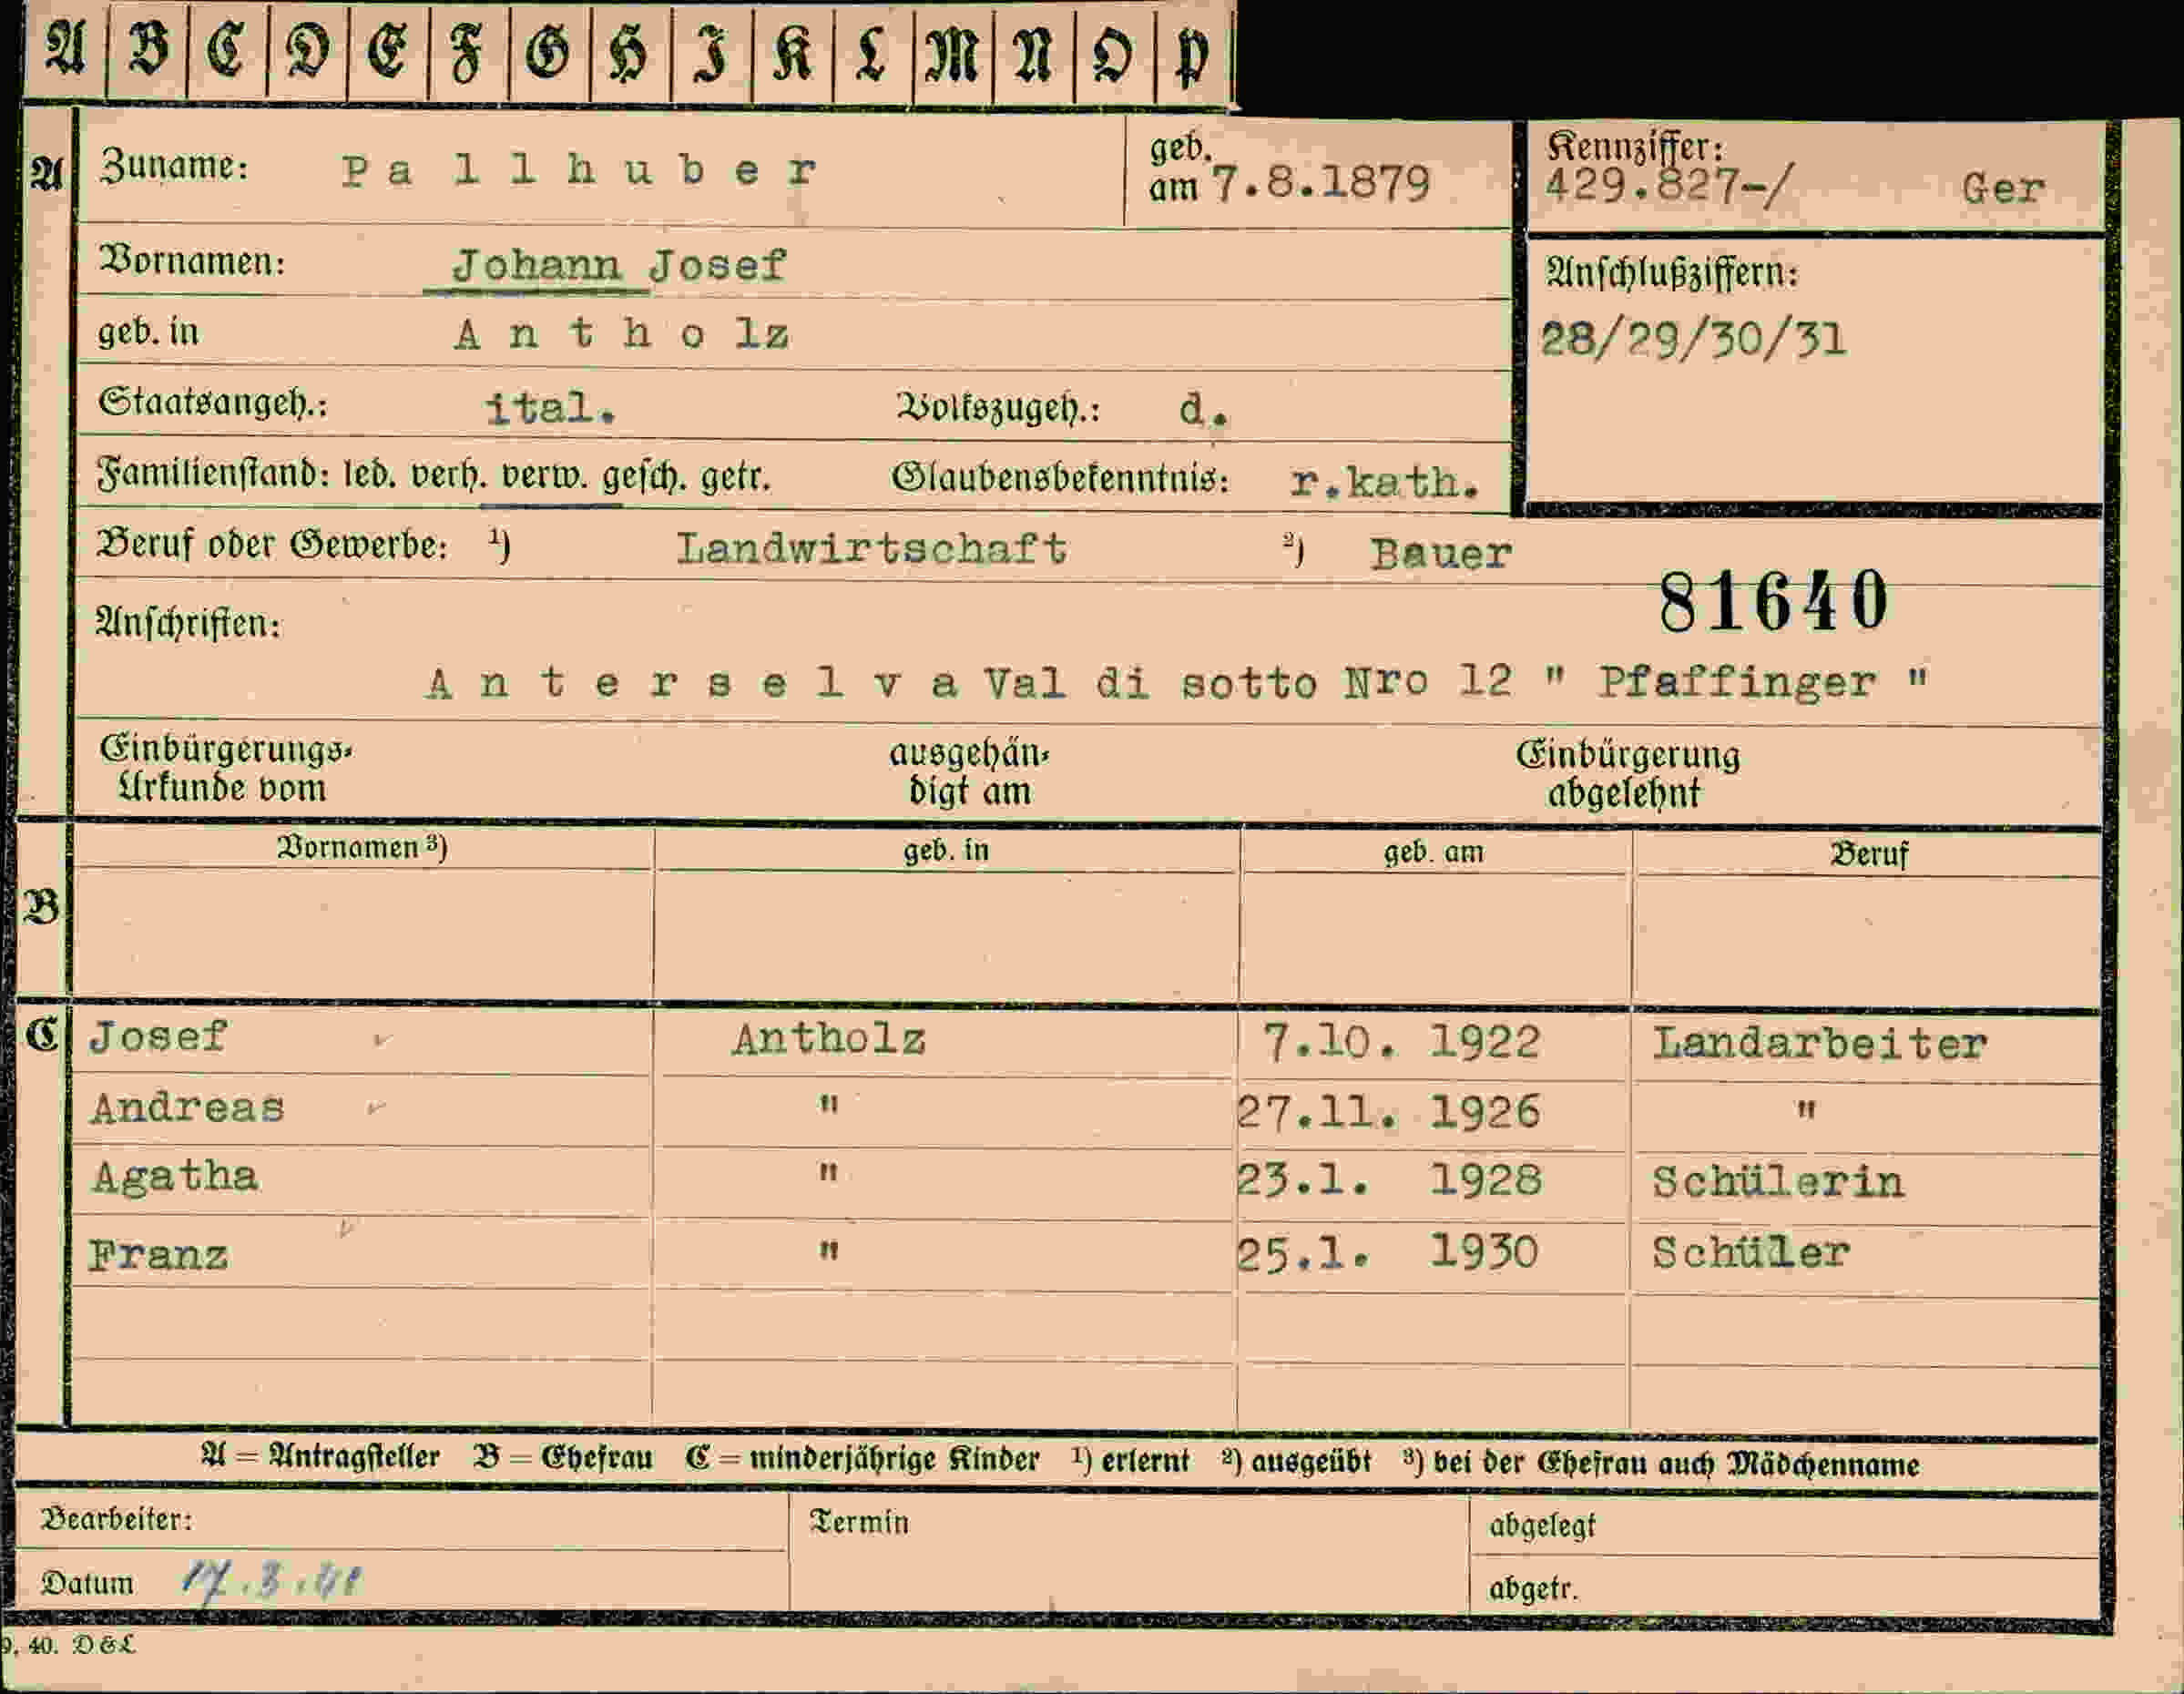 A B C D E F G H I K L M N O P
A Zuname: Pallhuber geb. am 7.8.1879 Kennziffer: 429.827-/ Ger
Vornamen: Johann Josef Anschlußziffern:
geb. in Antholz 28/29/30/31
Staatsangeh.: ital. Volkszugeh.: d.
Familienstand: led. verh. verw. gesch. getr. Glaubensbekenntnis: r.kath.
Beruf oder Gewerbe: ¹) Landwirtschaft ²) Bauer
81640
Anschriften:
Anterselva Val di sotto Nro 12 " Pfaffinger "
Einbürgerungs- ausgehän- Einbürgerung
Urkunde vom digt am abgelehnt
Vornamen ³) geb. in geb. am Beruf
B
C Josef Antholz 7.10. 1922 Landarbeiter
Andreas " 27.11. 1926 "
Agatha " 23.1. 1928 Schülerin
Franz " 25.1. 1930 Schüler
A = Antragsteller B = Ehefrau C = minderjährige Kinder ¹) erlernt ²) ausgeübt ³) bei der Ehefrau auch Mädchenname
Bearbeiter: Termin abgelegt
Datum abgetr.
9. 40. D&L